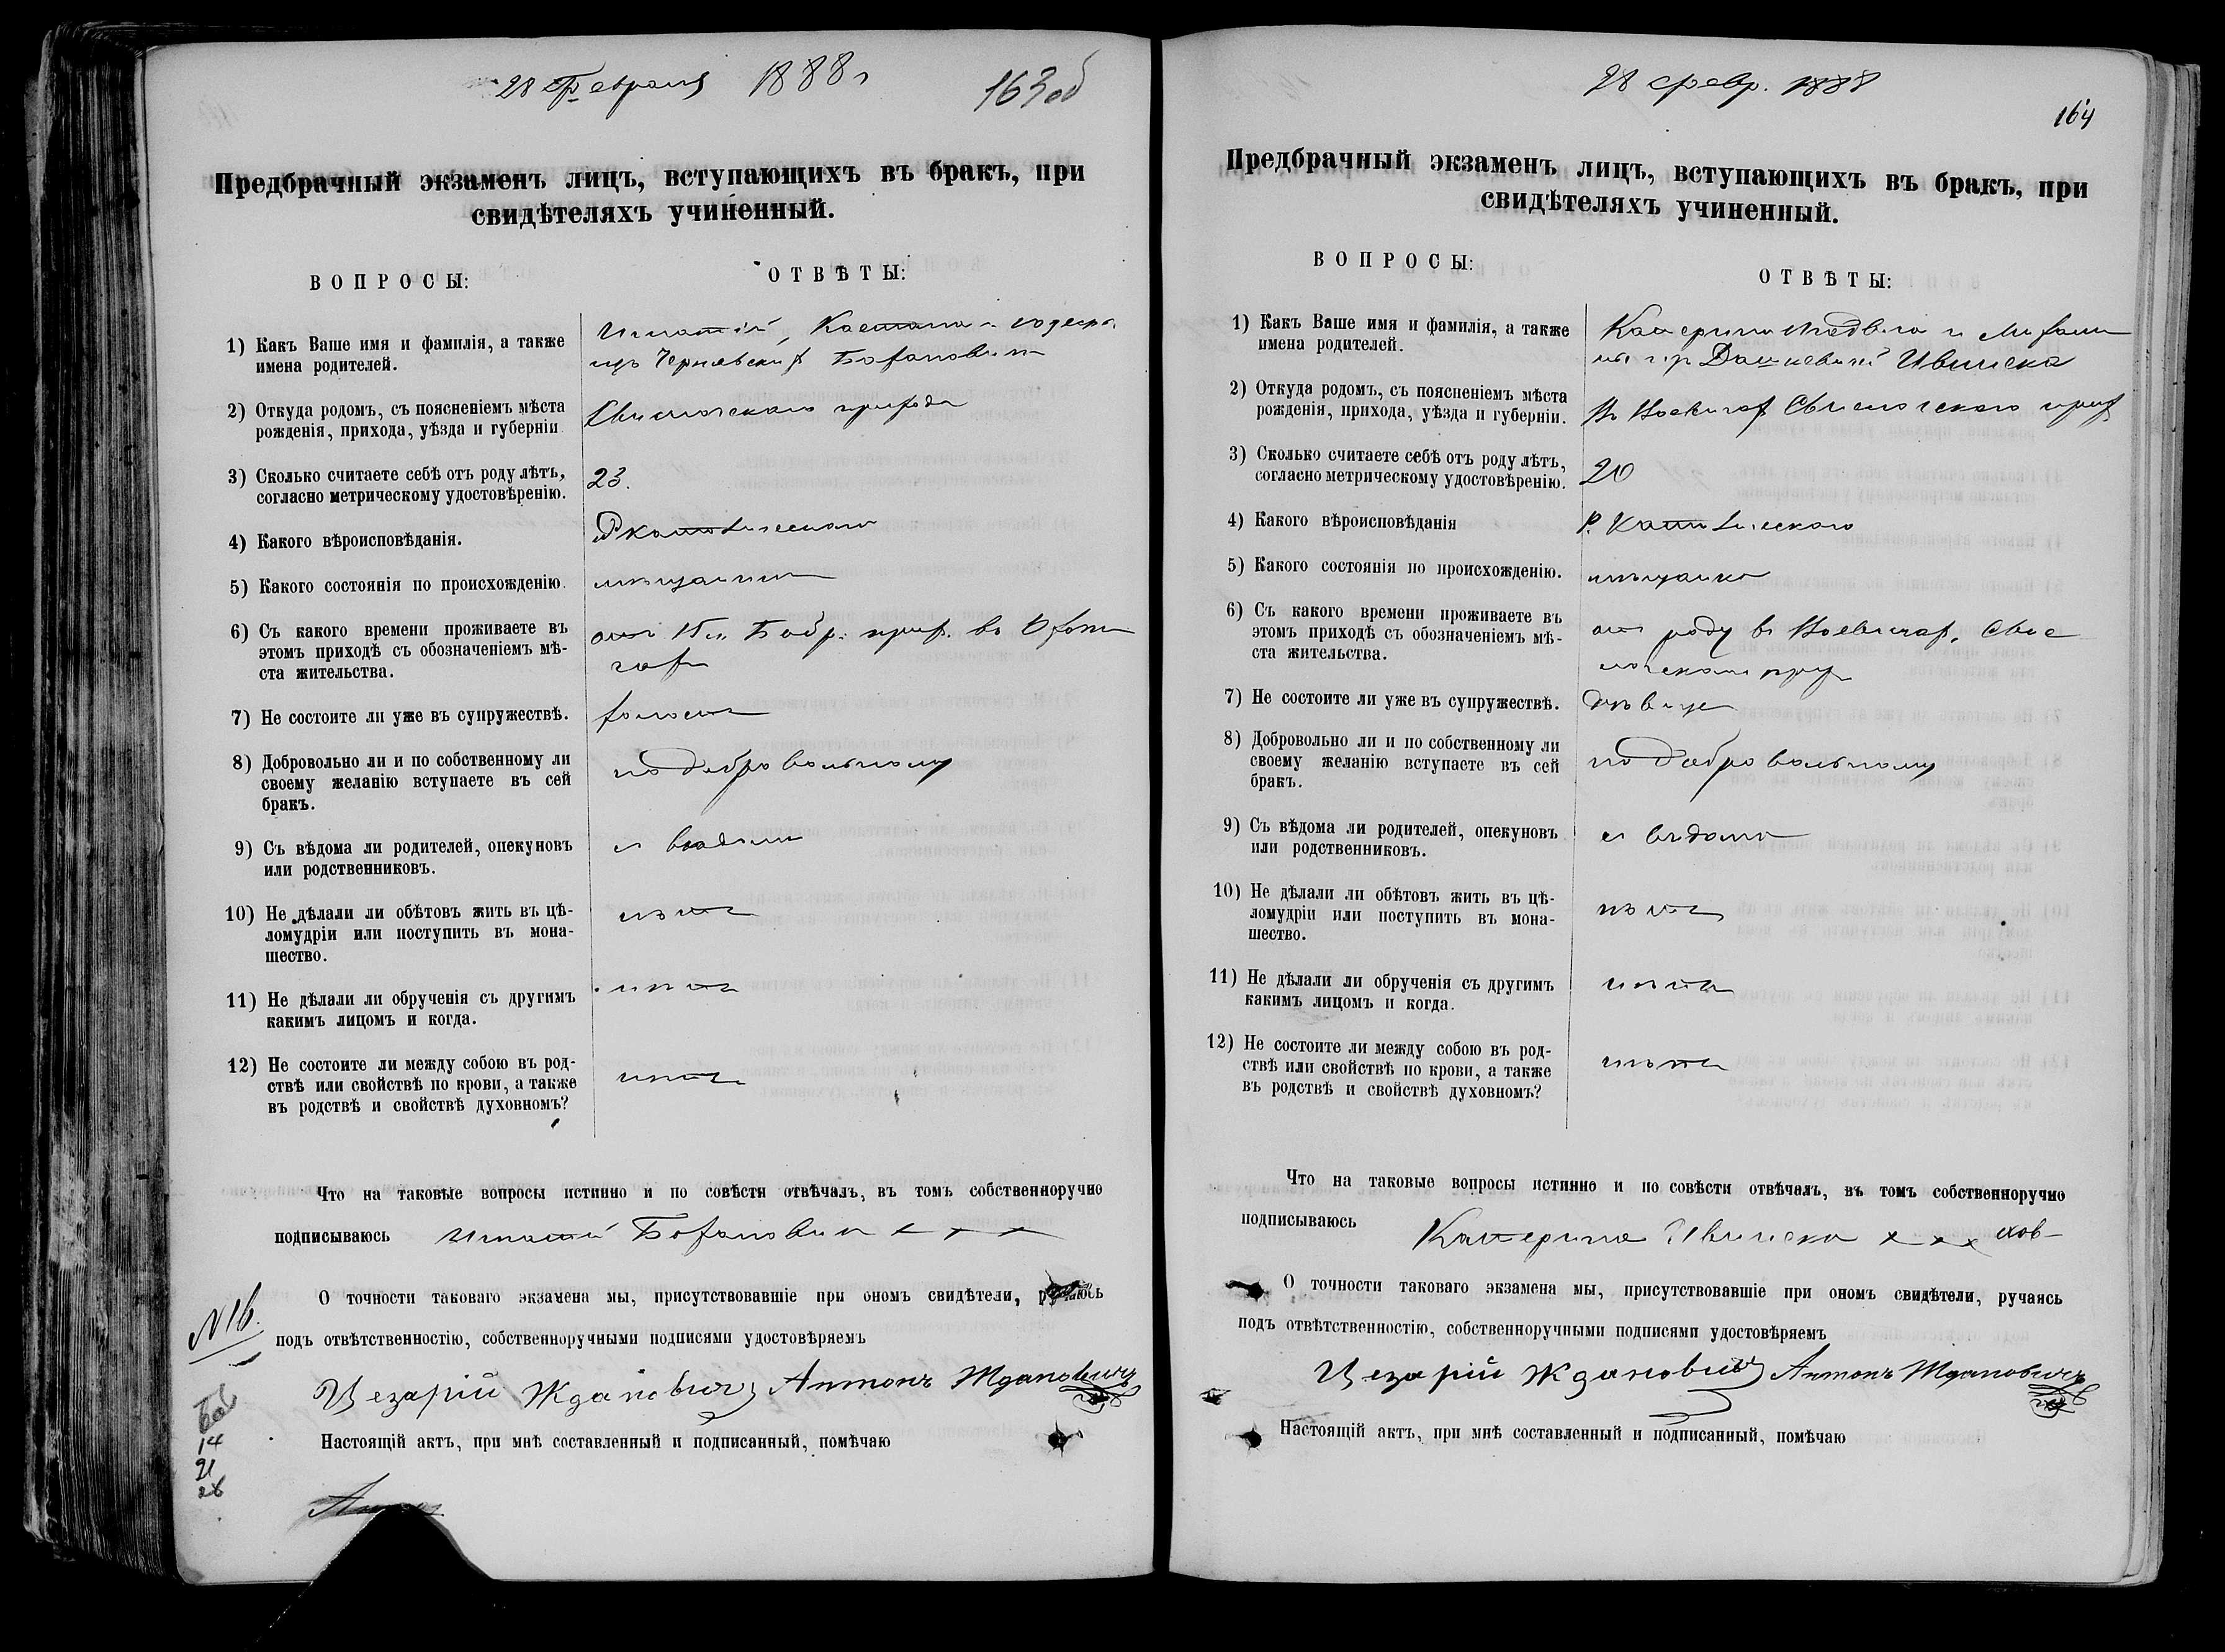 28 Февраля 1888 г
163 об
Предбрачный экзаменъ лицъ, вступающихъ въ бракъ, при
свидѣтеляхъ учиненный.
ВОПРОСЫ:
ОТВѢТЫ:
1) Какъ Ваше имя и фамилія, а также
имена родителей.
Игнатій,
2) Откуда родомъ, съ поясненіемъ мѣста
рожденія, прихода, уѣзда и губерніи
Свислочскаго прихода
3) Сколько считаете себѣ отъ роду лѣтъ,
согласно метрическому удостовѣренію.
23.
4) Какого вѣроисповѣданія.
Р католическаго
5) Какого состоянія по происхожденію.
мѣщанинъ
6) Съ какого времени проживаете въ
этомъ приходѣ съ обозначеніемъ мѣ-
ста жительства.
7) Не состоите ли уже въ супружествѣ.
холостъ
8) Добровольно ли и по собственному ли
своему желанію вступаете въ сей
бракъ.
по добровольному
9) Съ вѣдома ли родителей, опекуновъ
или родственниковъ.
10) Не дѣлали ли обѣтовъ жить въ цѣ-
ломудріи или поступить въ мона-
шество.
нѣтъ
11) Не дѣлали ли обрученія съ другимъ
какимъ лицомъ и когда.
нѣтъ
12) Не состоите ли между собою въ род-
ствѣ или свойствѣ по крови, а также
въ родствѣ и свойствѣ духовномъ?
нѣтъ
Что на таковые вопросы истинно и по совѣсти отвѣчалъ, въ томъ собственноручно
подписываюсь Игнатій Бохановичъ х х х
О точности таковаго экзамена мы, присутствовавшіе при ономъ свидѣтели,
подъ отвѣтственностію, собственноручными подписями удостовѣряемъ
N 16.
Цезарій Ждановичъ Антонъ Ждановичъ
14
21
28
Настоящій актъ, при мнѣ составленный и подписанный, помѣчаю
28 февр. 1888
164
Предбрачный экзаменъ лицъ, вступающихъ въ бракъ, при
свидѣтеляхъ учиненный.
ВОПРОСЫ:
ОТВѢТЫ:
1) Какъ Ваше имя и фамилія, а также
имена родителей.
Катерина
2) Откуда родомъ, съ поясненіемъ мѣста
рожденія, прихода, уѣзда и губерніи.
Свислочскаго прих
3) Сколько считаете себѣ отъ роду лѣтъ,
согласно метрическому удостовѣренію.
20
4) Какого вѣроисповѣданія
Р. Католическаго
5) Какого состоянія по происхожденію.
мѣщанка
6) Съ какого времени проживаете въ
этомъ приходѣ съ обозначеніемъ мѣ-
ста жительства.
7) Не состоите ли уже въ супружествѣ.
дѣвица
8) Добровольно ли и по собственному ли
своему желанію вступаете въ сей
бракъ.
по добровольному
9) Съ вѣдома ли родителей, опекуновъ
или родственниковъ.
съ вѣдома
10) Не дѣлали ли обѣтовъ жить въ цѣ-
ломудріи или поступить въ мона-
шество.
нѣтъ
11) Не дѣлали ли обрученія съ другимъ
какимъ лицомъ и когда.
нѣтъ
12) Не состоите ли между собою въ род-
ствѣ или свойствѣ по крови, а также
въ родствѣ и свойствѣ духовномъ?
нѣтъ
Что на таковые вопросы истинно и по совѣсти отвѣчалъ, въ томъ собственноручно
подписываюсь Катерина х х х
О точности таковаго экзамена мы, присутствовавшіе при ономъ свидѣтели, ручаясь
подъ отвѣтственностію, собственноручными подписями удостовѣряемъ
Цезарій Ждановичъ Антонъ Ждановичъ
Настоящій актъ, при мнѣ составленный и подписанный, помѣчаю